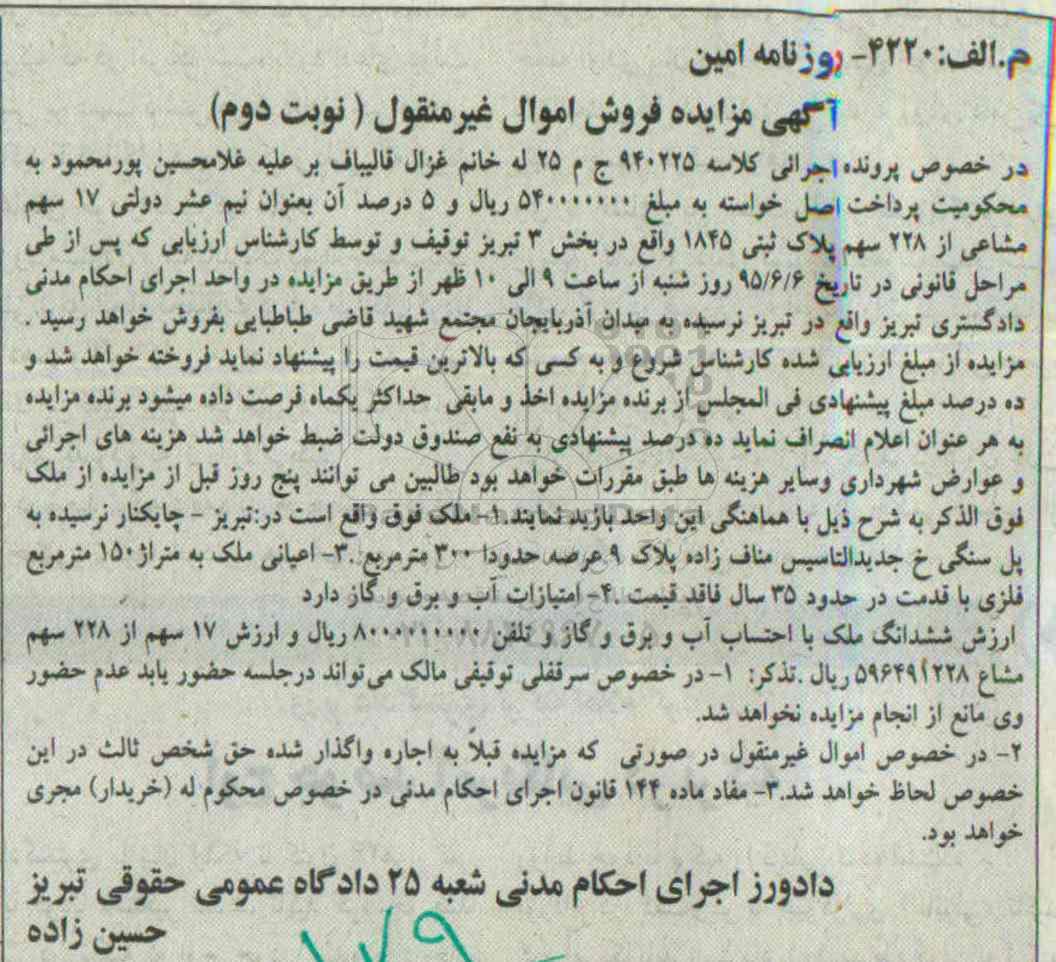 م.الف:۴۲۲۰- روزنامه امین
آگهی مزایده فروش اموال غیرمنقول ( نوبت دوم)
در خصوص پرونده اجرائی کلاسه ۹۴۰۲۲۵ ج م ۲۵ له خانم غزال قالیباف بر علیه غلامحسین پورمحمود به
محکومیت پرداخت اصل خواسته به مبلغ ۵۴۰۰۰۰۰۰۰ ریال و ۵ درصد آن بعنوان نیم عشر دولتی ۱۷ سهم
مشاعی از ۲۲۸ سهم پلاک ثبتی ۱۸۴۵ واقع در بخش ۳ تبریز توقیف و توسط کارشناس ارزیابی که پس از طی
مراحل قانونی در تاریخ ۹۵/۶/۶ روز شنبه از ساعت ۹ الی ۱۰ ظهر از طریق مزایده در واحد اجرای احکام مدنی
دادگستری تبریز واقع در تبریز نرسیده به میدان آذربایجان مجتمع شهید قاضی طباطبایی بفروش خواهد رسید .
مزایده از مبلغ ارزیابی شده کارشناس شروع و به کسی که بالاترین قیمت را پیشنهاد نماید فروخته خواهد شد و
ده درصد مبلغ پیشنهادی فی المجلس از برنده مزایده اخذ و مابقی حداکثر یکماه فرصت داده میشود برنده مزایده
به هر عنوان اعلام انصراف نماید ده درصد پیشنهادی به نفع صندوق دولت ضبط خواهد شد هزینه های اجرائی
و عوارض شهرداری وسایر هزینه ها طبق مقررات خواهد بود طالبین می توانند پنج روز قبل از مزایده از ملک
فوق الذکر به شرح ذیل با هماهنگی این واحد بازید نمایند.۱- ملک فوق واقع است در:تبریز - چایکنار نرسیده به
پل سنگی خ جدیدالتاسیس مناف زاده پلاک ۹ عرصه حدودا ۳۰۰ مترمربع .۳- اعیانی ملک به متراژ ۱۵۰ مترمربع
فلزی با قدمت در حدود ۳۵ سال فاقد قیمت .۴- امتیازات آب و برق و گاز دارد
ارزش ششدانگ ملک با احتساب آب و برق و گاز و تلفن ۸۰۰۰۰۰۰۰۰۰ ریال و ارزش ۱۷ سهم از ۲۲۸ سهم
مشاع ۵۹۶۴۹۱۲۲۸ ریال .تذکر: ۱- در خصوص سرقفلی توقیفی مالک می‌تواند درجلسه حضور یابد عدم حضور
وی مانع از انجام مزایده نخواهد شد.
۲- در خصوص اموال غیرمنقول در صورتی که مزایده قبلاً به اجاره واگذار شده حق شخص ثالث در این
خصوص لحاظ خواهد شد.۳- مفاد ماده ۱۴۴ قانون اجرای احکام مدنی در خصوص محکوم له (خریدار) مجری
خواهد بود.
دادورز اجرای احکام مدنی شعبه ۲۵ دادگاه عمومی حقوقی تبریز
حسین زاده
۱۷۹